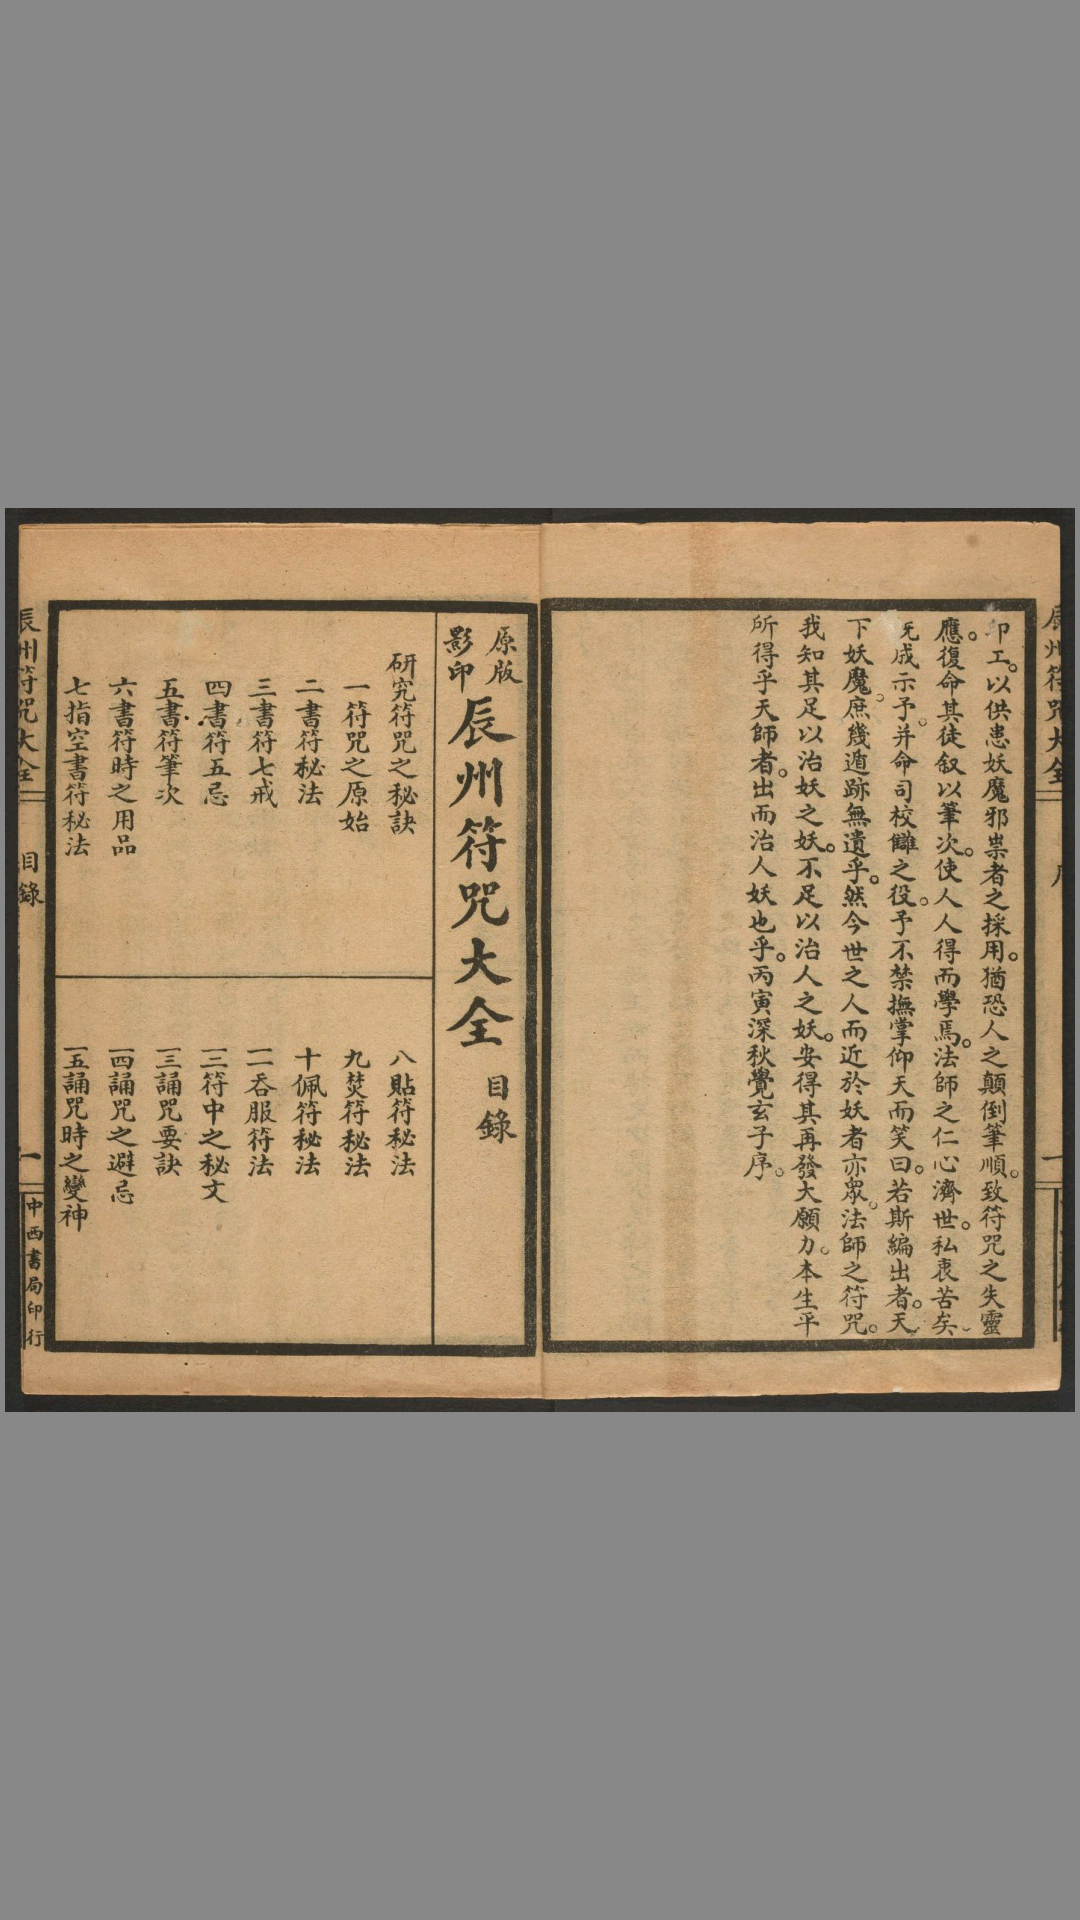 印工。以供患妖魔邪祟者之採用。猶恐人之顛倒筆順。致符咒之失靈
應。復命其徒叙以筆次。使人人得而學焉。法師之仁心濟世。私衷苦矣。
既成示予。并命司校讎之役。予不禁撫掌仰天而笑曰。若斯編出者。天
下妖魔。庶幾遁跡無遺乎。然今世之人而近於妖者亦眾。法師之符咒。
我知其足以治妖之妖。不足以治人之妖。安得其再發大願力。本生平
所得乎天師者。出而治人妖也乎。丙寅深秋覺玄子序。
原版
影印
辰州符咒大全
目錄
研究符咒之秘訣
一符咒之原始
二書符秘法
三書符七戒
四書符五忌
五書符筆次
六書符時之用品
七指空書符秘法
八貼符秘法
九焚符秘法
十佩符秘法
一一吞服符法
一二符中之秘文
一三誦咒要訣
一四誦咒之避忌
一五誦咒時之變神
辰州符咒大全
目錄
一
中西書局印行